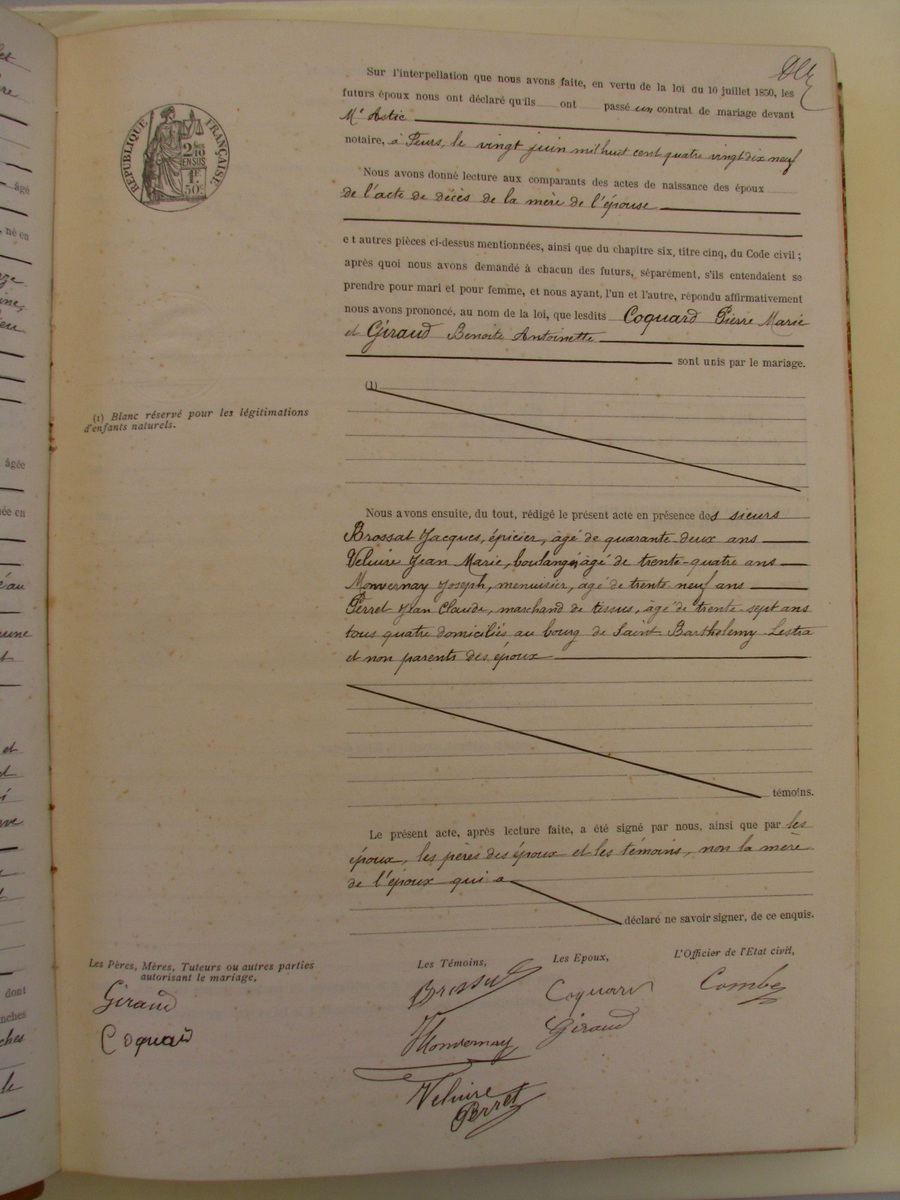 Sur l'interpellation que nous avons faite, en vertu de la loi du 10 juillet 1850, les
futurs époux nous ont déclaré qu'ils ont passé un contrat de mariage devant
Me Astic
notaire, à Feurs, le vingt juin mil huit cent quatre vingt dix neuf
Nous avons donné lecture aux comparants des actes de naissance des époux
de l'acte de décès de la mère de l'épouse
et autres pièces ci-dessus mentionnées, ainsi que du chapitre six, titre cinq, du Code civil ;
après quoi nous avons demandé à chacun des futurs, séparément, s'ils entendaient se
prendre pour mari et pour femme, et nous ayant, l'un et l'autre, répondu affirmativement
nous avons prononcé, au nom de la loi, que lesdits Coquard Pierre Marie
et Giraud Benoite Antoinette
sont unis par le mariage.
(1)
RÉPUBLIQUE FRANÇAISE
2/10 EN SUS
1F 50c
(1) Blanc réservé pour les légitimations
d'enfants naturels.
Nous avons ensuite, du tout, rédigé le présent acte en présence des sieurs
Brossat Jacques, épicier, âgé de quarante-deux ans
Veluire Jean Marie, boulanger, âgé de trente-quatre ans
Monvernay Joseph, menuisier, âgé de trente neuf ans
Perret Jean Claude, marchand de tissus, âgé de trente-sept ans
tous quatre domiciliés au bourg de Saint Barthelemy-Lestra
et non parents des époux
témoins.
Le présent acte, après lecture faite, a été signé par nous, ainsi que par les
époux, les pères des époux et les témoins, non la mère
de l'époux qui a
déclaré ne savoir signer, de ce enquis.
Les Pères, Mères, Tuteurs ou autres parties
autorisant le mariage,
Giraud
Coquard
Les Témoins,
Brossat
Monvernay
Veluire
Perret
Les Epoux,
Coquard
Giraud
L'Officier de l'Etat civil,
Combe